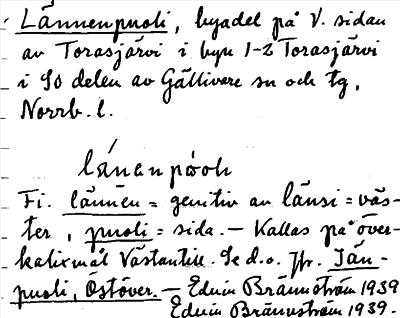 Lännenpuoli, byadel på V. sidan
av Torasjärvi i byn 1-2 Torasjärvi
i SO delen av Gällivare sn och tg,
Norrb. l.
länenpòoli
Fi. lännen = genitiv av länsi = väs-
ter, puoli = sida. — Kallas på över-
kalixmål Västantill. Se d.o. Jfr. Itän-
puoli, Östöver. — Edvin Brännström 1939
Edvin Brännström 1939.